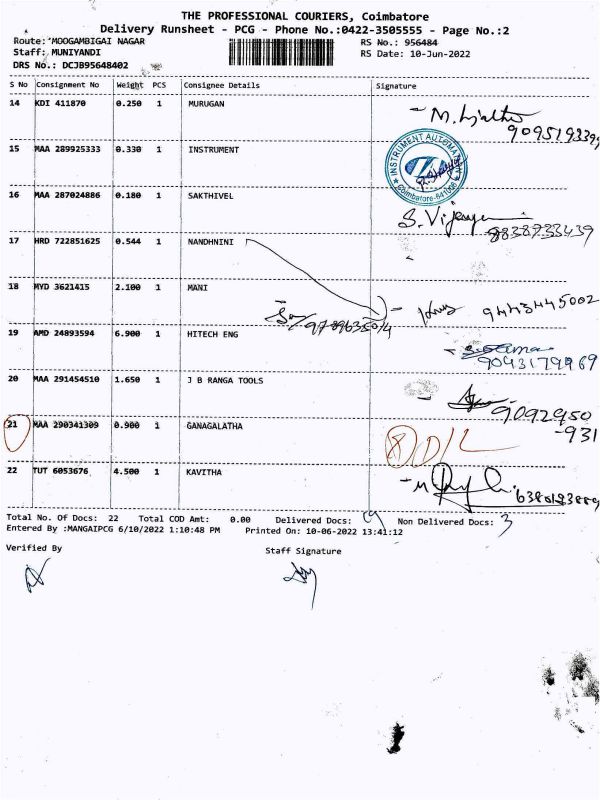 THE PROFESSIONAL COURIERS, Coimbatore
Delivery Runsheet - PCG - Phone No.:0422-3505555 - Page No.:2
Route: MOOGAMBIGAI NAGAR
RS No.: 956484
Staff: MUNIYANDI
RS Date: 10-Jun-2022
DRS No.: DCJB95648402
S No Consignment No Weight PCS Consignee Details Signature
14 KDI 411870 0.250 1 MURUGAN
15 MAA 289925333 0.330 1 INSTRUMENT
INSTRUMENT AUTOMAT
Coimbatore-641006
16 MAA 287024886 0.180 1 SAKTHIVEL
17 HRD 722851625 0.544 1 NANDHNINI
8838933439
18 MYD 3621415 2.100 1 MANI
9443445002
19 AMD 24893594 6.900 1 HITECH ENG
9043179969
20 MAA 291454510 1.650 1 J B RANGA TOOLS
9092950
21 MAA 290341309 0.900 1 GANAGALATHA
-931
D/L
22 TUT 6053676 4.500 1 KAVITHA
Total No. Of Docs: 22 Total COD Amt: 0.00 Delivered Docs: 19 Non Delivered Docs: 3
Entered By :MANGAIPCG 6/10/2022 1:10:48 PM Printed On: 10-06-2022 13:41:12
Verified By Staff Signature